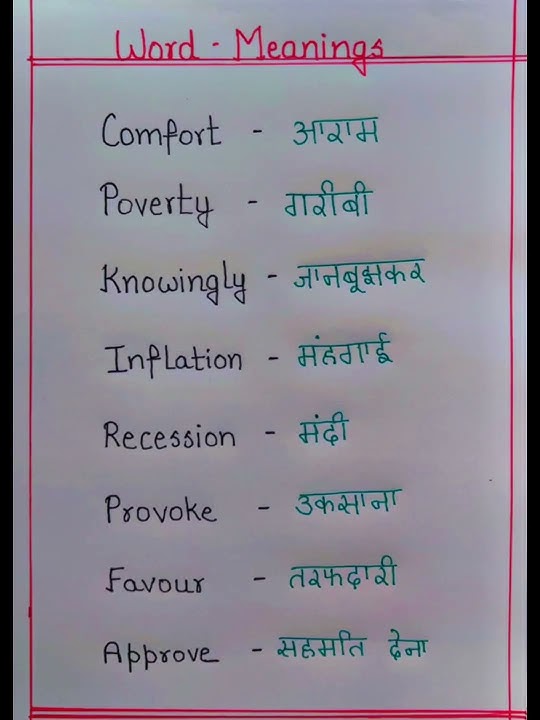 Word - Meanings
Comfort - आराम
Poverty - गरीबी
Knowingly - जानबूझकर
Inflation - मंहगाई
Recession - मंदी
Provoke - उकसाना
Favour - तरफदारी
Approve - सहमति देना